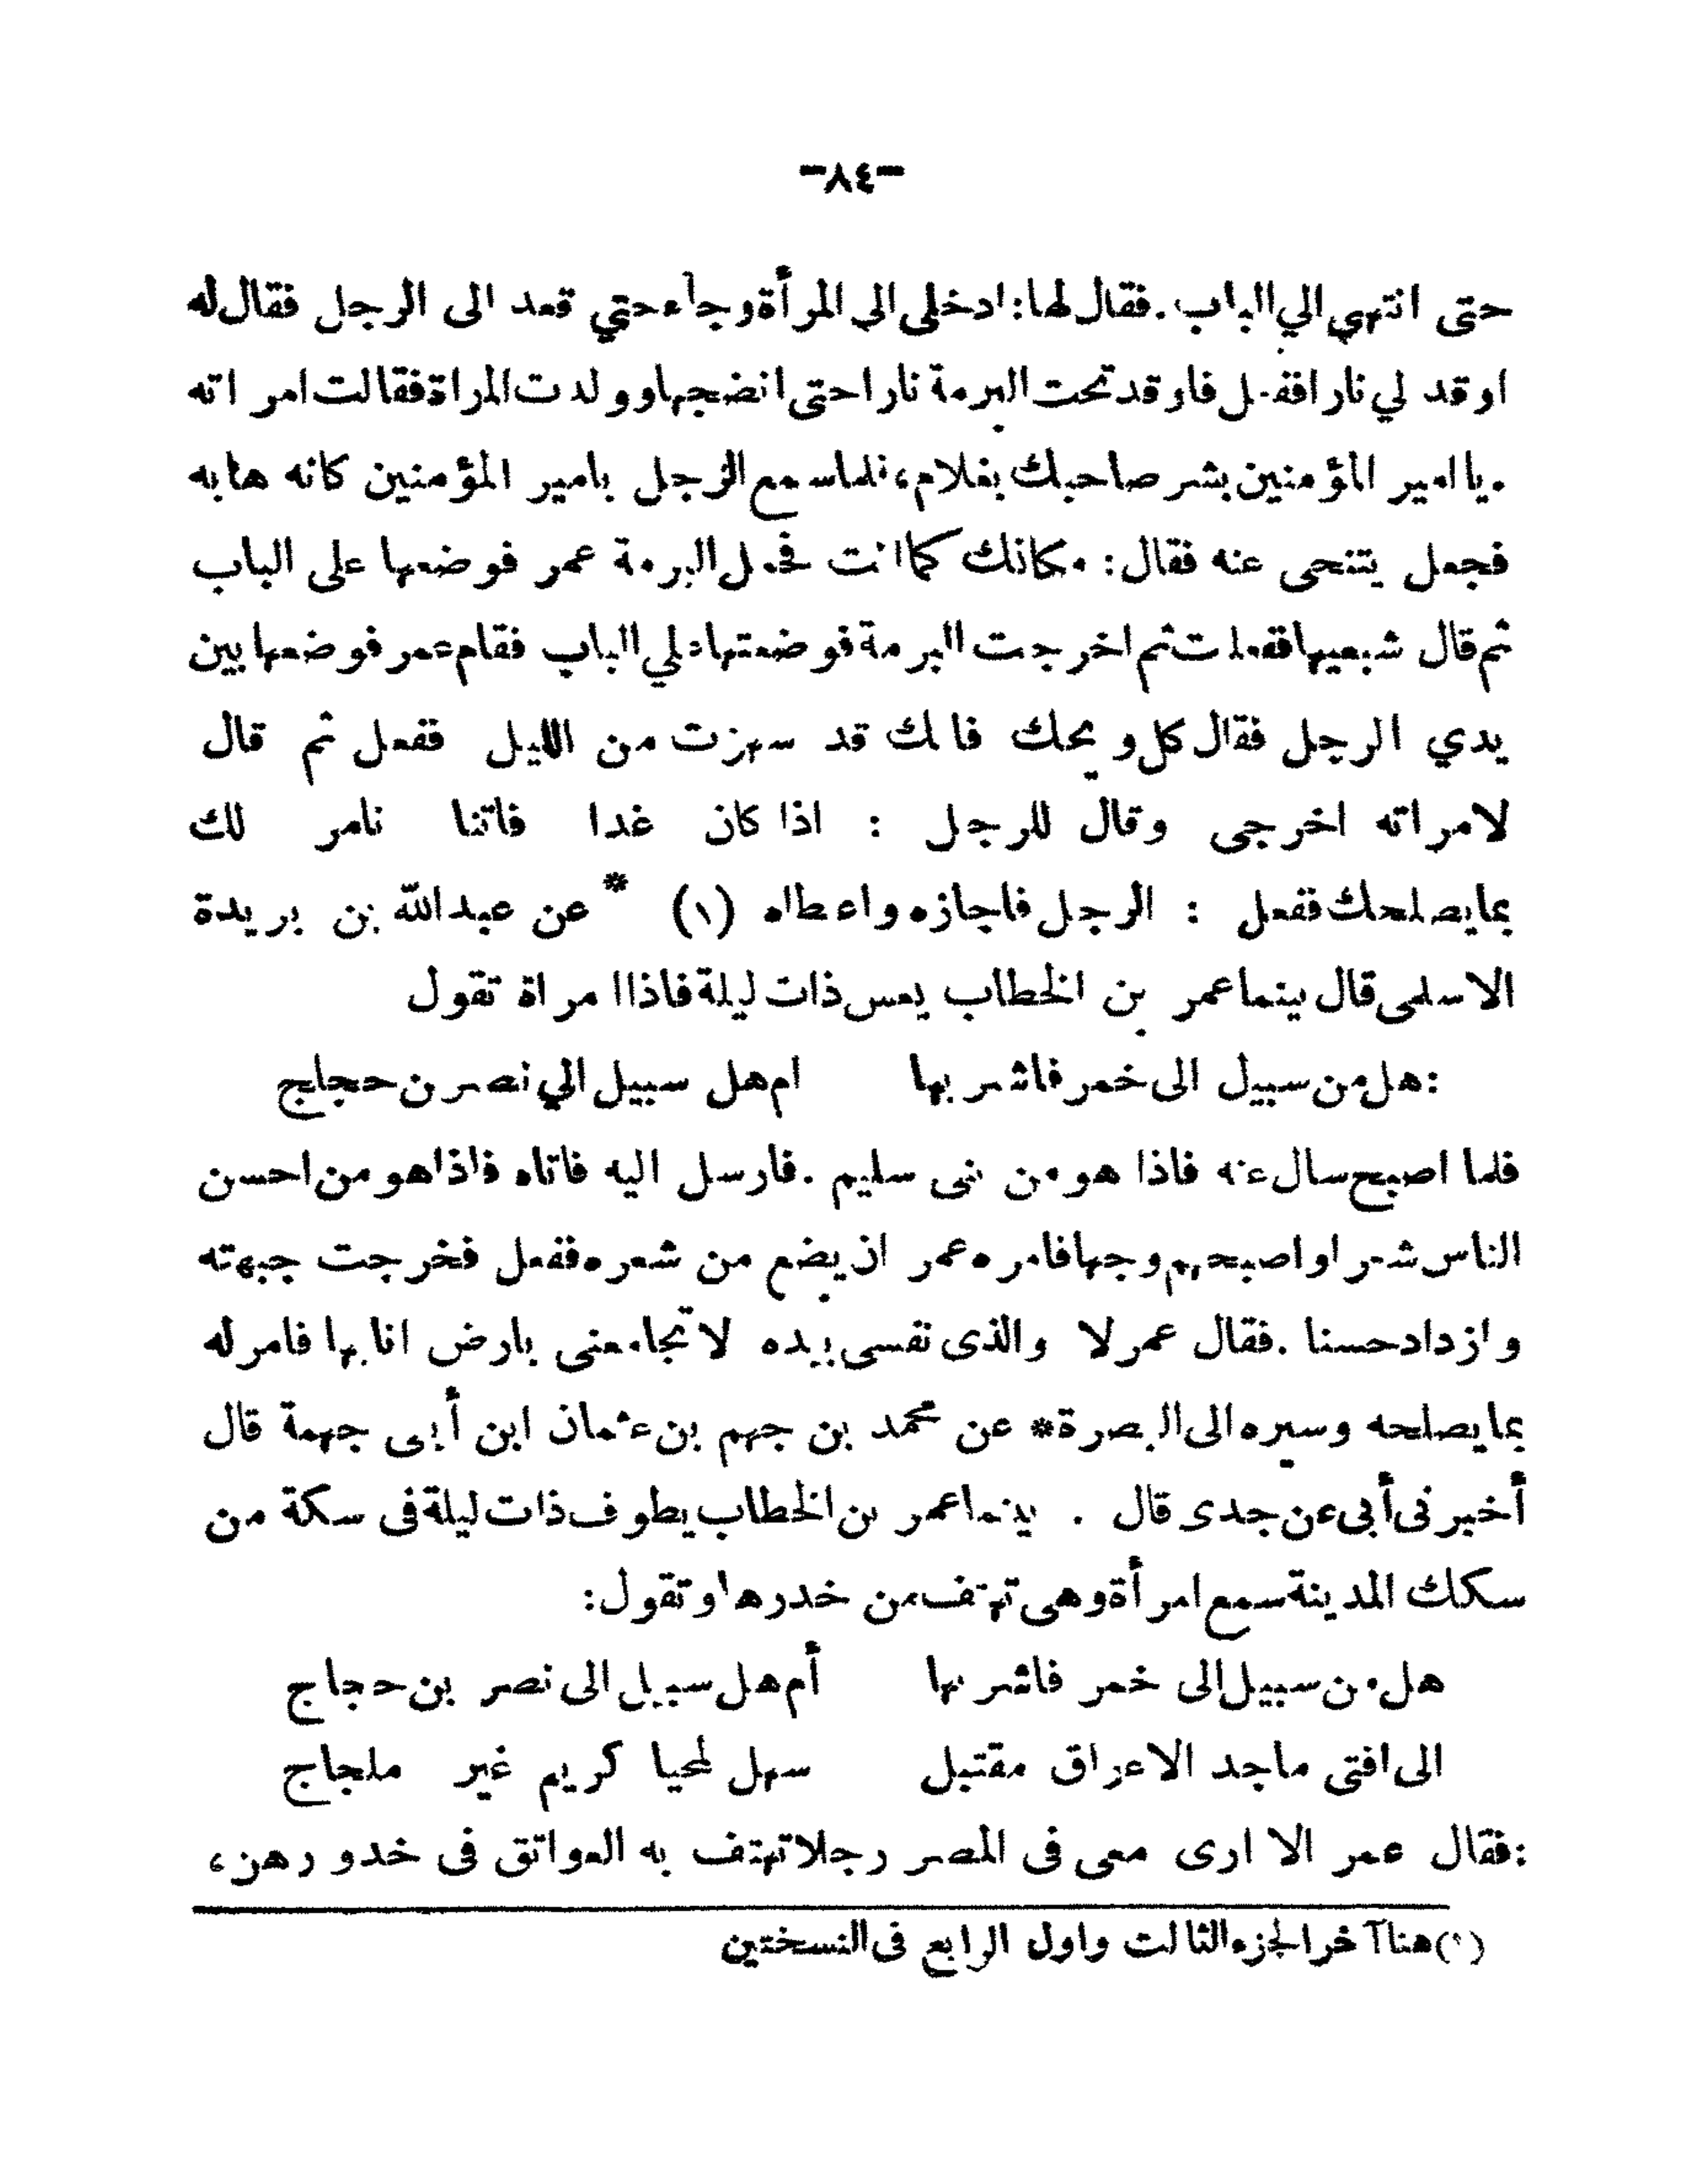 -٨٤-
حتى انتهي الي الباب .فقال لها: ادخلى الى المرأة وجاء حتي قعد الى الرجل فقال له
اوقد لي نارا ففعل فاوقد تحت البرمة نارا حتى انضجها وولدت المراة فقالت امراته
.يا امير المؤمنين بشر صاحبك بغلام، فلما سمع الرجل بامير المؤمنين كانه هابه
فجعل يتنحى عنه فقال: مكانك كما انت فحمل البرمة عمر فوضعها على الباب
ثم قال شبعيها ففعلت ثم اخرجت البرمة فوضعتها علي الباب فقام عمر فوضعها بين
يدي الرجل فقال كل ويحك فالك قد سهرت من الليل ففعل ثم قال
لامراته اخرجى وقال للرجل : اذا كان غدا فاتنا نامر لك
بما يصلحك ففعل : الرجل فاجازه واعطاه (١) * عن عبد الله بن بريدة
الاسلمى قال بينما عمر بن الخطاب يعس ذات ليلة فاذا امراة تقول
:هل من سبيل الى خمر فاشربها ام هل سبيل الي نصر بن حجاج
فلما اصبح سال عنه فاذا هو من بنى سليم .فارسل اليه فاتاه فاذا هو من احسن
الناس شعرا واصبحهم وجها فامره عمر ان يضع من شعره ففعل فخرجت جبهته
وازداد حسنا .فقال عمر لا والذى نفسى بيده لا تجامعنى بارض انا بها فامر له
بما يصلحه وسيره الى البصرة* عن محمد بن جهم بن عثمان ابن أبى جهمة قال
أخبرنى أبى عن جدى قال . بينما عمر بن الخطاب يطوف ذات ليلة فى سكة من
سكك المدينة سمع امرأة وهى تهتف من خدرها وتقول:
هل من سبيل الى خمر فاشربها أم هل سبيل الى نصر بن حجاج
الى افتى ماجد الاعراق مقتبل سهل لمحيا كريم غير ملجاج
:فقال عمر الا ارى معى فى المصر رجلا تهتف به العواتق فى خدورهن،
(١) هنا آخر الجزء الثالت واول الرابع فى النسختين